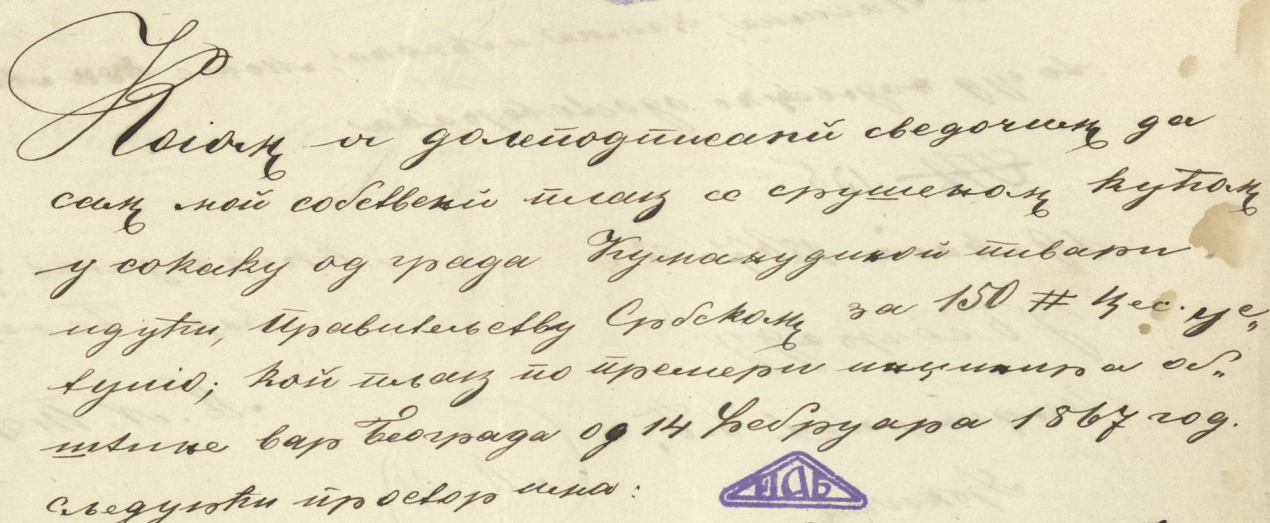 Којом я долеподписаный сведочим да
сам мой собствени плац са срушеном кућом
у сокаку од града Кумануудиной пивари
идући, Правительству Србском за 150 # цес. ус„
тупіо; кой плац по премери инцинира об„
штине вар Београда од 14 Фебруара 1867 год.
следујући простор има:
ИАБ